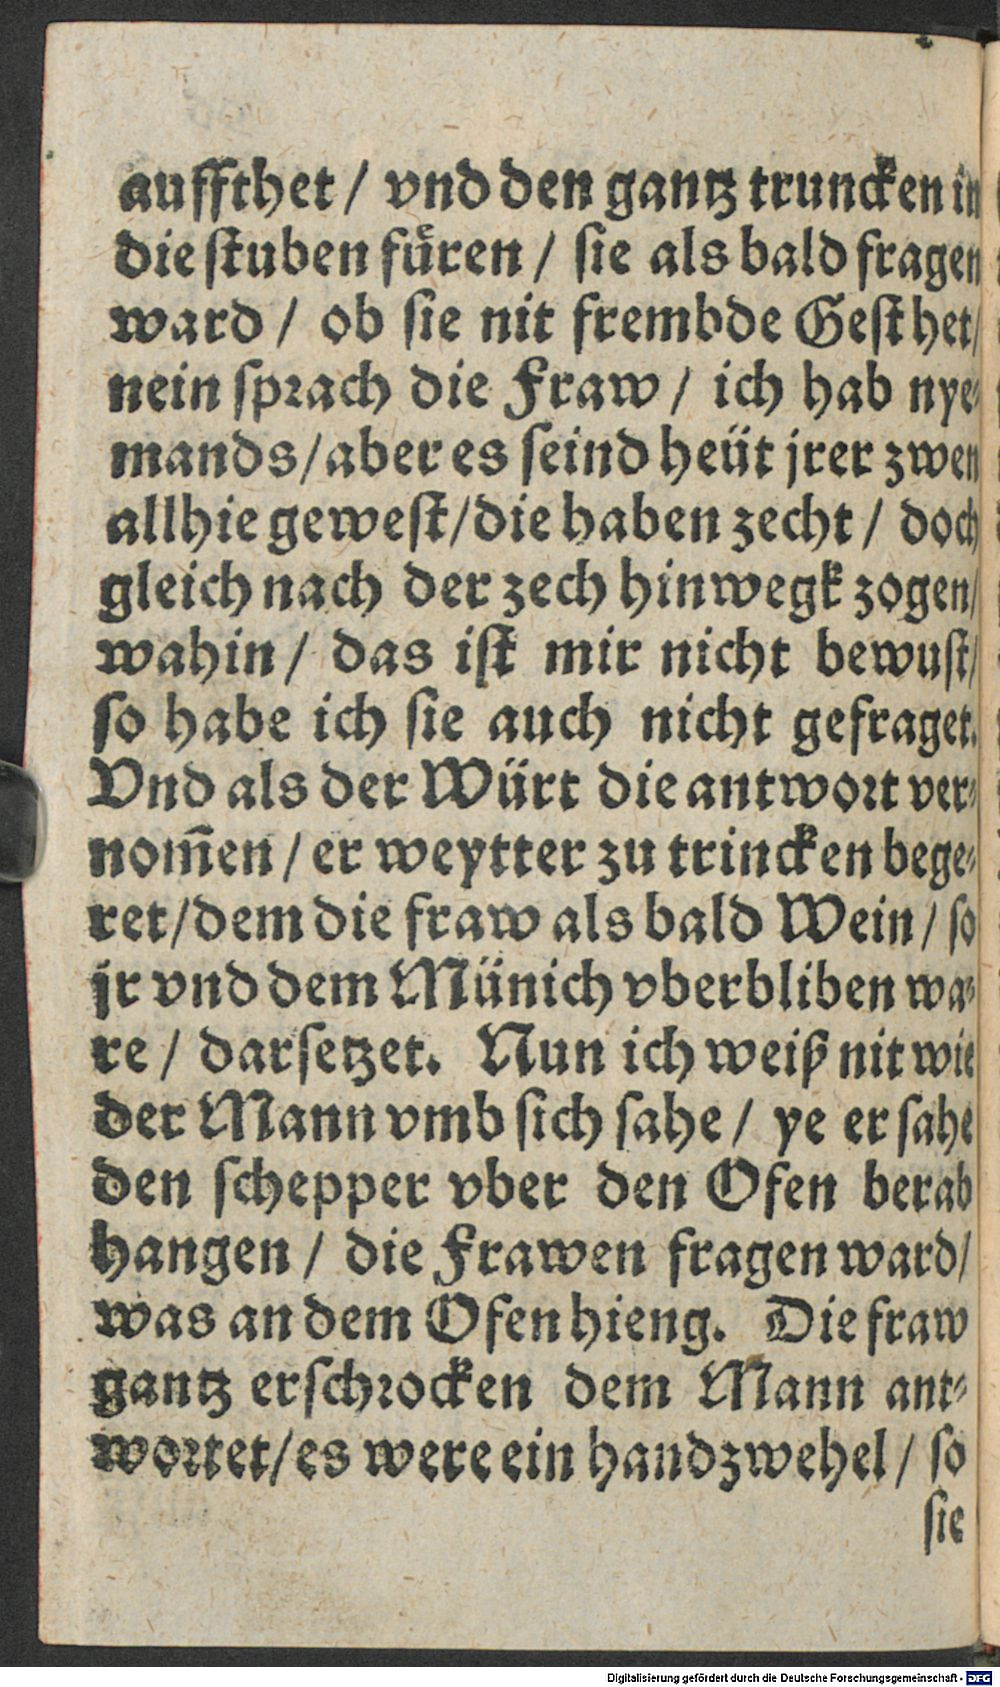 auffthet / vnd den gantz truncken in
die stuben fuͤren / sie als bald fragen
ward / ob sie nit frembde Gest het /
nein sprach die Fraw / ich hab nye-
mands / aber es seind heüt jrer zwen
allhie gewest / die haben zecht / doch
gleich nach der zech hinwegk zogen /
wahin / das ist mir nicht bewust /
so habe ich sie auch nicht gefraget.
Vnd als der Würt die antwort ver-
nom̃en / er weytter zu trincken bege-
ret / dem die fraw als bald Wein / so
jr vnd dem Münich vberbliben wa-
re / darsetzet. Nun ich weiß nit wie
der Mann vmb sich sahe / ye er sahe
den schepper vber den Ofen berab
hangen / die Frawen fragen ward /
was an dem Ofen hieng. Die fraw
gantz erschrocken dem Mann ant-
wortet / es were ein handzwehel / so
sie
Digitalisierung gefördert durch die Deutsche Forschungsgemeinschaft - DFG